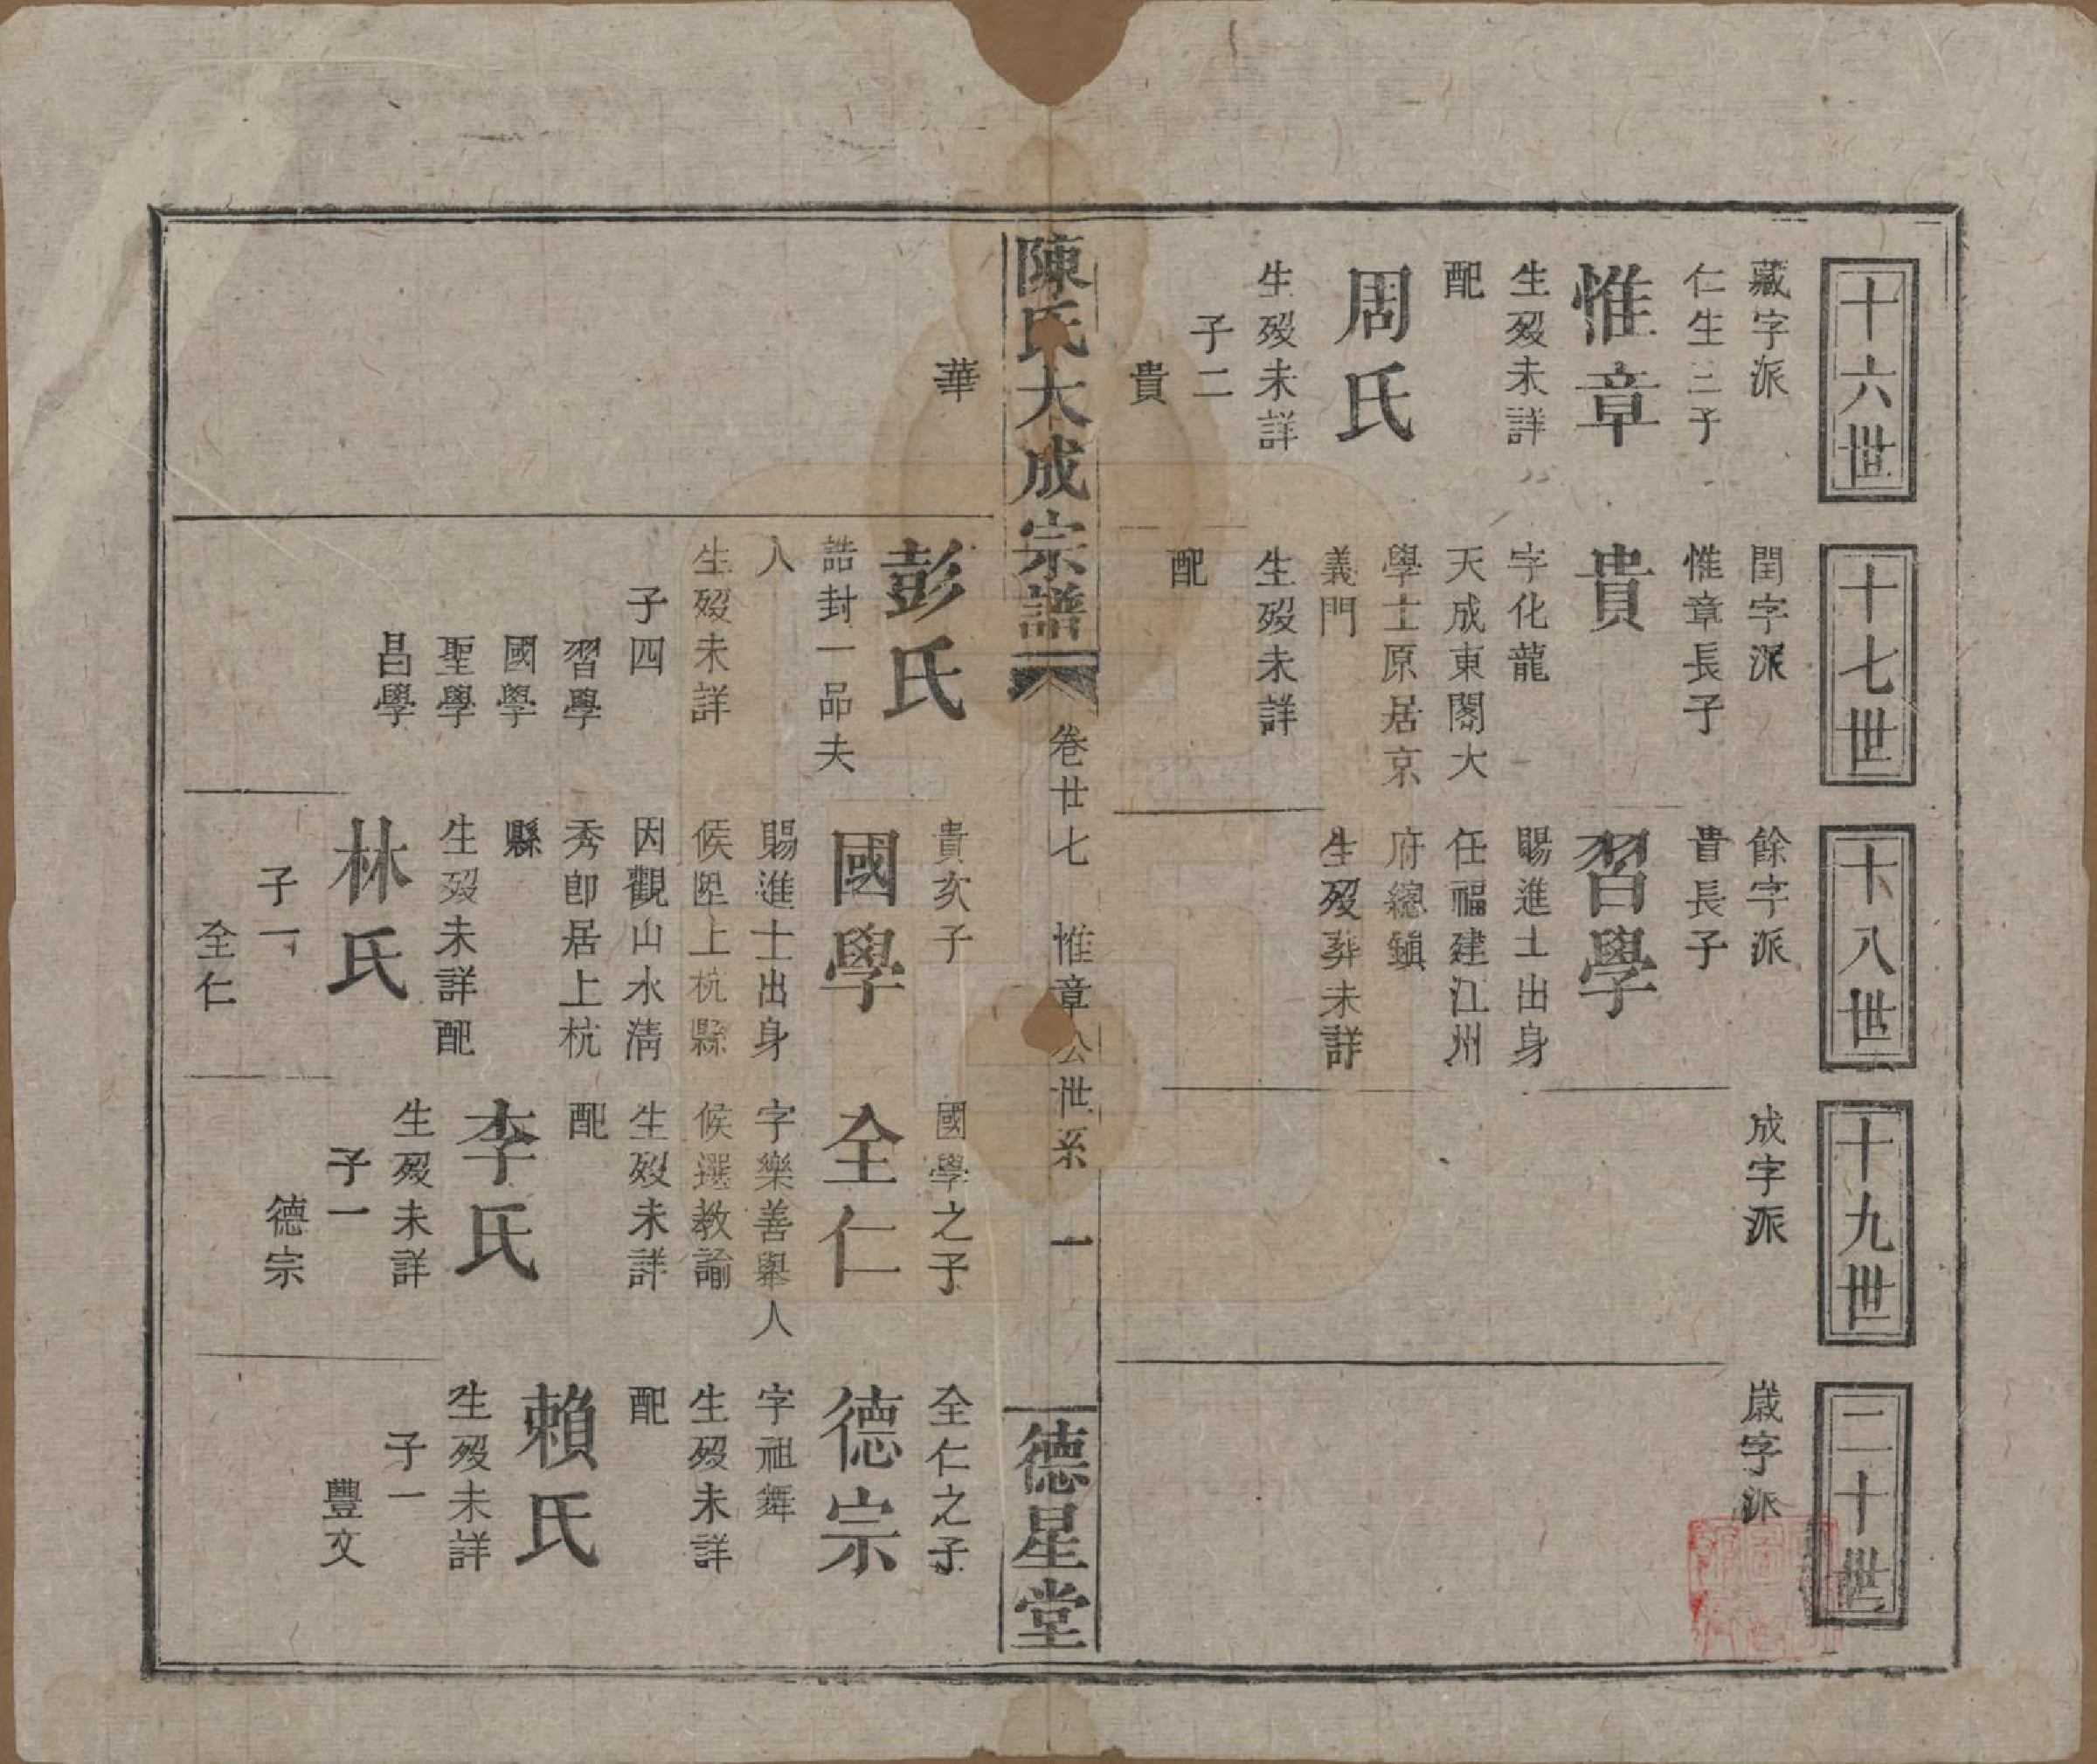 十六世
藏字派
仁生三子
惟章
生歿未詳
配
周氏
生歿未詳
子二
貴
十七世
閏字派
惟章長子
貴
字化龍
天成東閣大
學士原居京
義門
生歿未詳
配
十八世
餘字派
貴長子
習學
賜進士出身
任福建江州
府總鎮
生歿葬未詳
十九世
成字派
二十世
歲字派
陳氏大成宗譜
卷廿七
惟章公世系
一
德星堂
華
彭氏
誥封一品夫
人
生歿未詳
子四
習學
國學
聖學
昌學
貴次子
國學
賜進士出身
候陞上杭縣
因觀山水清
秀卽居上杭
縣
生歿未詳配
林氏
子一
全仁
國學之子
全仁
字樂善舉人
候選教諭
生歿未詳
配
李氏
生歿未詳
子一
德宗
全仁之子
德宗
字祖舞
生歿未詳
配
賴氏
生歿未詳
子一
豐文